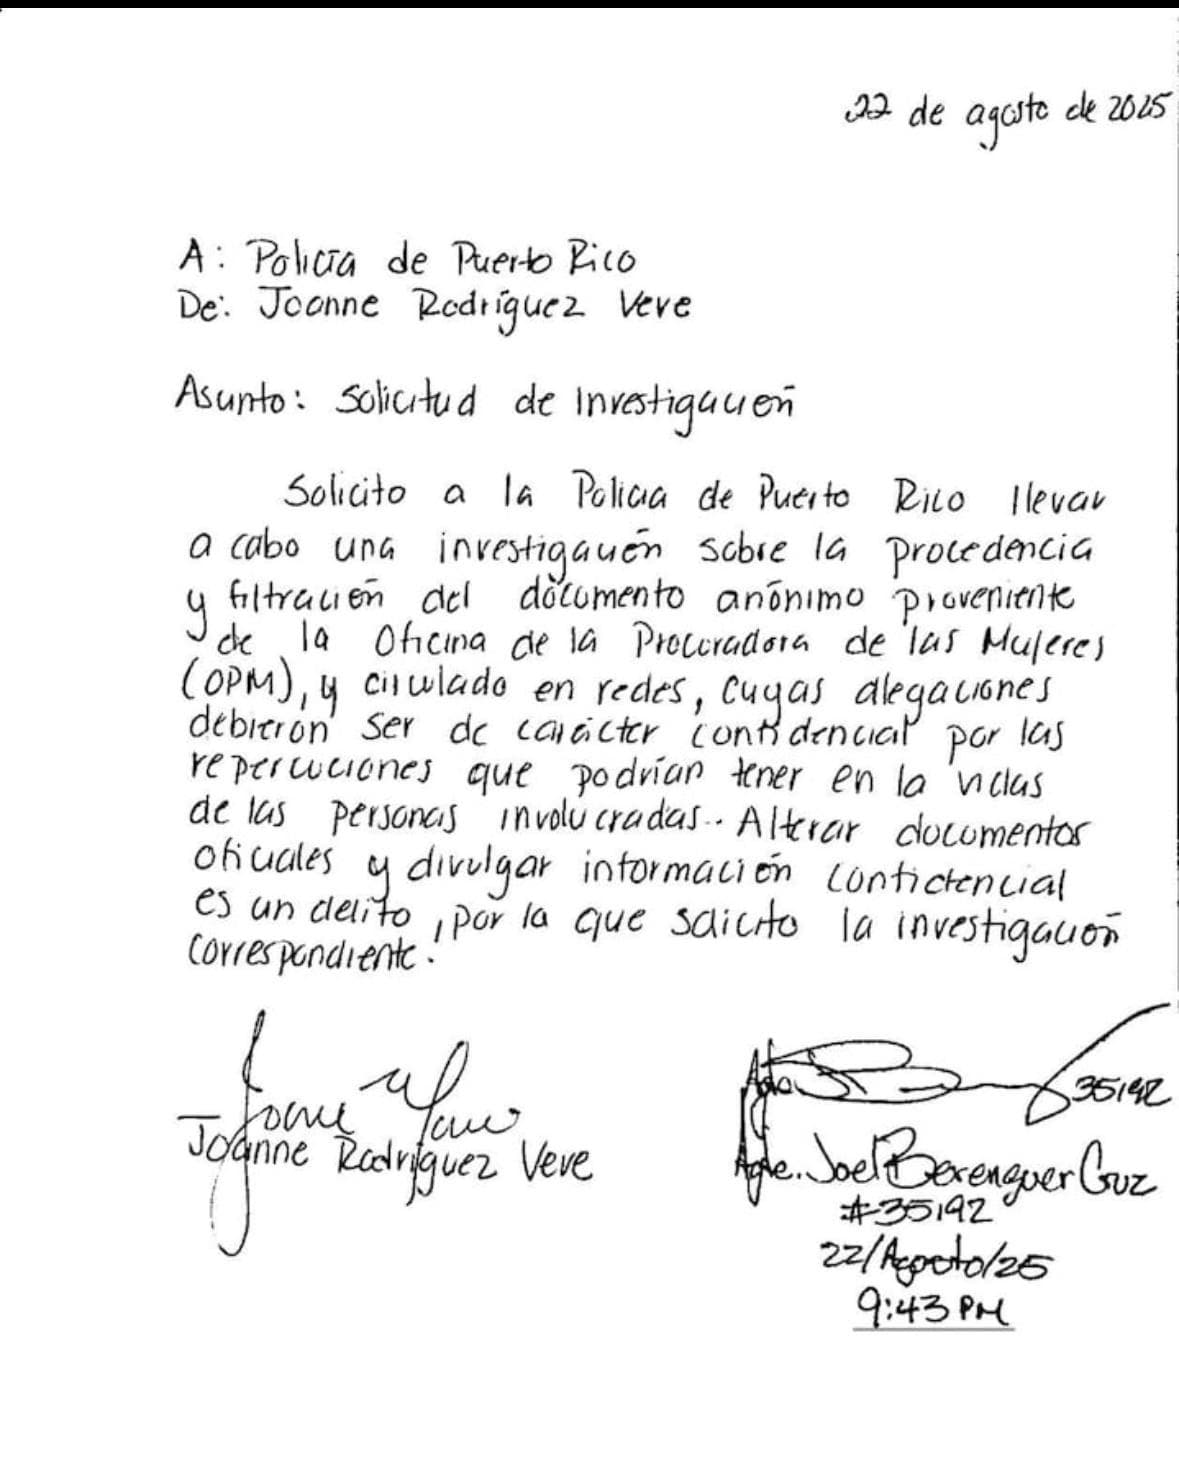 22 de agosto de 2025
A: Policía de Puerto Rico
De: Joanne Rodríguez Veve
Asunto: Solicitud de Investigación
Solicito a la Policia de Puerto Rico llevar
a cabo una investigación sobre la procedencia
y filtración del documento anónimo proveniente
de la Oficina de la Procuradora de las Mujeres
(OPM), y circulado en redes, cuyas alegaciones
debieron ser de carácter confidencial por las
repercuciones que podrían tener en la vidas
de las personas involucradas.. Alterar documentos
oficiales y divulgar información confidencial
es un delito, por la que solicito la investigación
correspondiente.
35192
Joanne Rodríguez Veve
Agte. Joel Berenguer Cruz
#35192
22/Agosto/25
9:43 PM